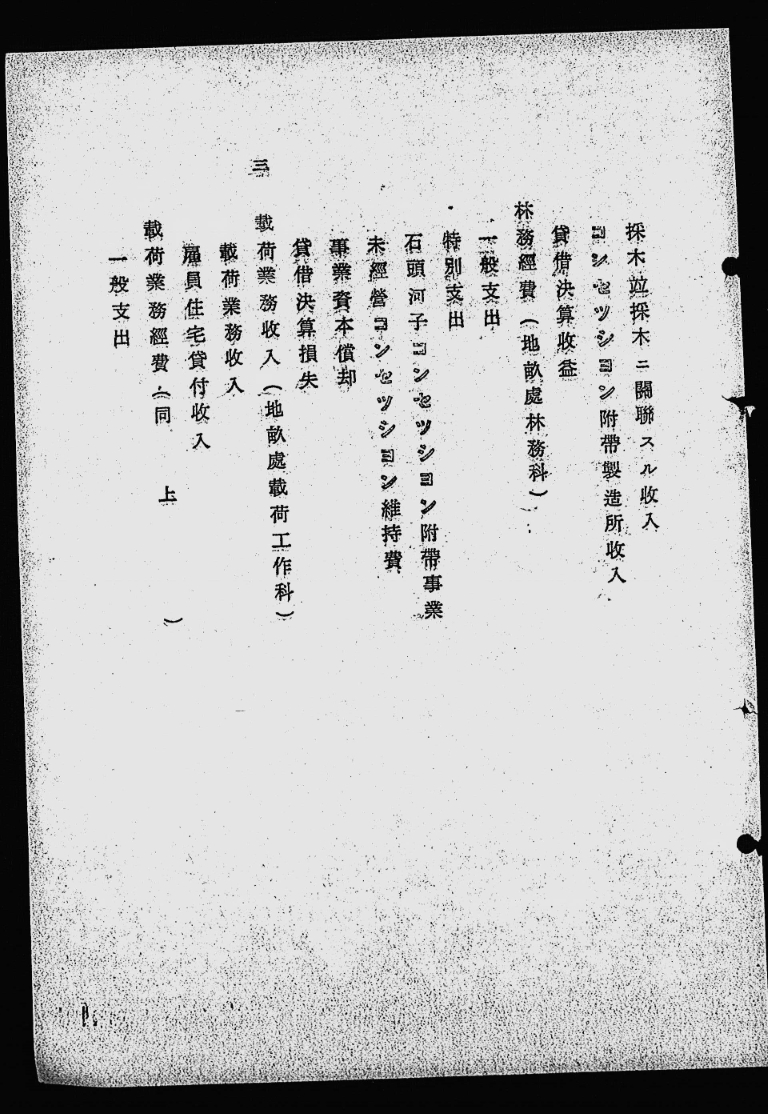 採木竝採木ニ關聯スル收入
コンセツシヨン附帶製造所收入
貸借決算收益
林務經費（地畝處林務科）
一般支出
特別支出
石頭河子コンセツシヨン附帶事業
未經營コンセツシヨン維持費
事業資本償却
貸借決算損失
三　載荷業務收入（地畝處載荷工作科）
載荷業務收入
雇員住宅貸付收入
載荷業務經費（同　上　）
一般支出